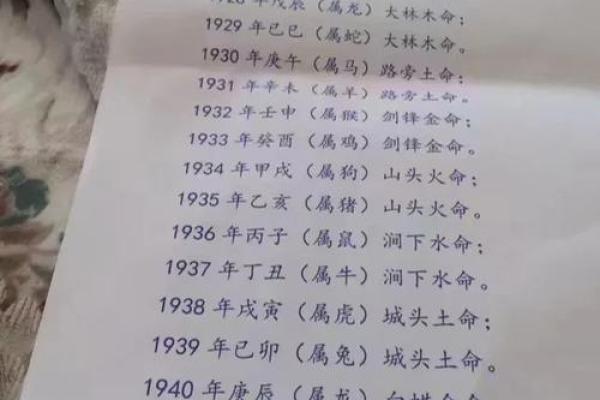 1928 年戊辰（属龙）大林木命；
1929 年己巳（属蛇）大林木命。
1930 年庚午（属马）路旁土命；
1931 年辛未（属羊）路旁土命。
1932 年壬申（属猴）剑锋金命；
1933 年癸酉（属鸡）剑锋金命。
1934 年甲戌（属狗）山头火命；
1935 年乙亥（属猪）山头火命。
1936 年丙子（属鼠）涧下水命；
1937 年丁丑（属牛）涧下水命。
1938 年戊寅（属虎）城头土命；
1939 年己卯（属兔）城头土命。
1940 年庚辰（属龙）